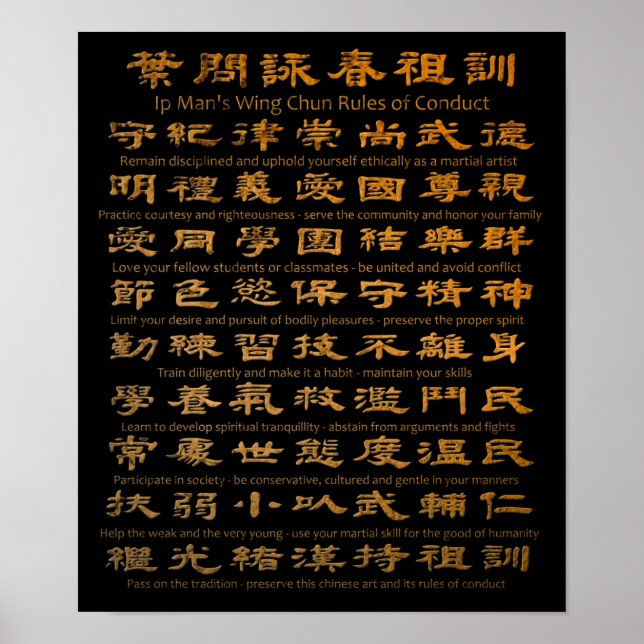 葉問詠春祖訓
Ip Man's Wing Chun Rules of Conduct
守紀律崇尚武德
Remain disciplined and uphold yourself ethically as a martial artist
明禮義愛國尊親
Practice courtesy and righteousness - serve the community and honor your family
愛同學團結樂群
Love your fellow students or classmates - be united and avoid conflict
節色慾保守精神
Limit your desire and pursuit of bodily pleasures - preserve the proper spirit
勤練習技不離身
Train diligently and make it a habit - maintain your skills
學養氣救濫鬥民
Learn to develop spiritual tranquillity - abstain from arguments and fights
常處世態度温民
Participate in society - be conservative, cultured and gentle in your manners
扶弱小以武輔仁
Help the weak and the very young - use your martial skill for the good of humanity
繼光緒漢持祖訓
Pass on the tradition - preserve this chinese art and its rules of conduct